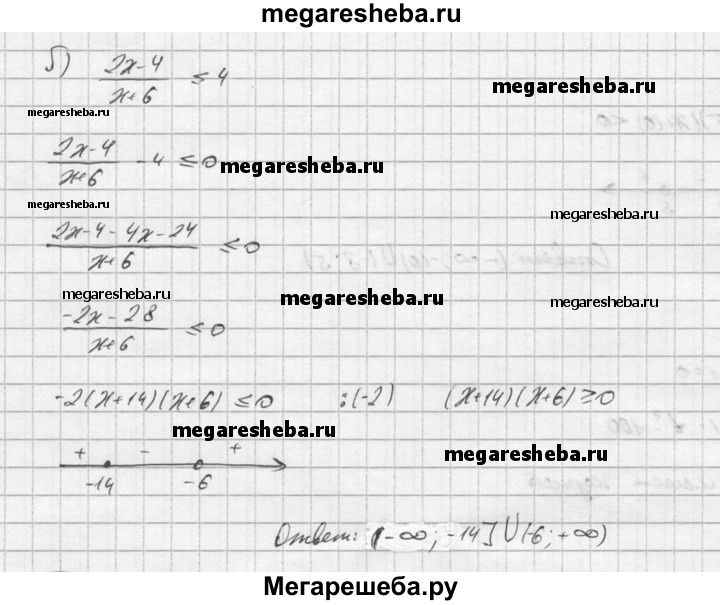 megaresheba.ru
б) (2x-4)/(x+6) ≤ 4
megaresheba.ru
megaresheba.ru
(2x-4)/(x+6) - 4 ≤ 0
megaresheba.ru
megaresheba.ru
megaresheba.ru
(2x-4-4x-24)/(x+6) ≤ 0
megaresheba.ru
megaresheba.ru
megaresheba.ru
(-2x-28)/(x+6) ≤ 0
-2(x+14)(x+6) ≤ 0 :(-2) (x+14)(x+6) ≥ 0
megaresheba.ru
+ - +
megaresheba.ru
-14 -6
Ответ: (-∞; -14]∪(-6; +∞)
Мегарешеба.ру